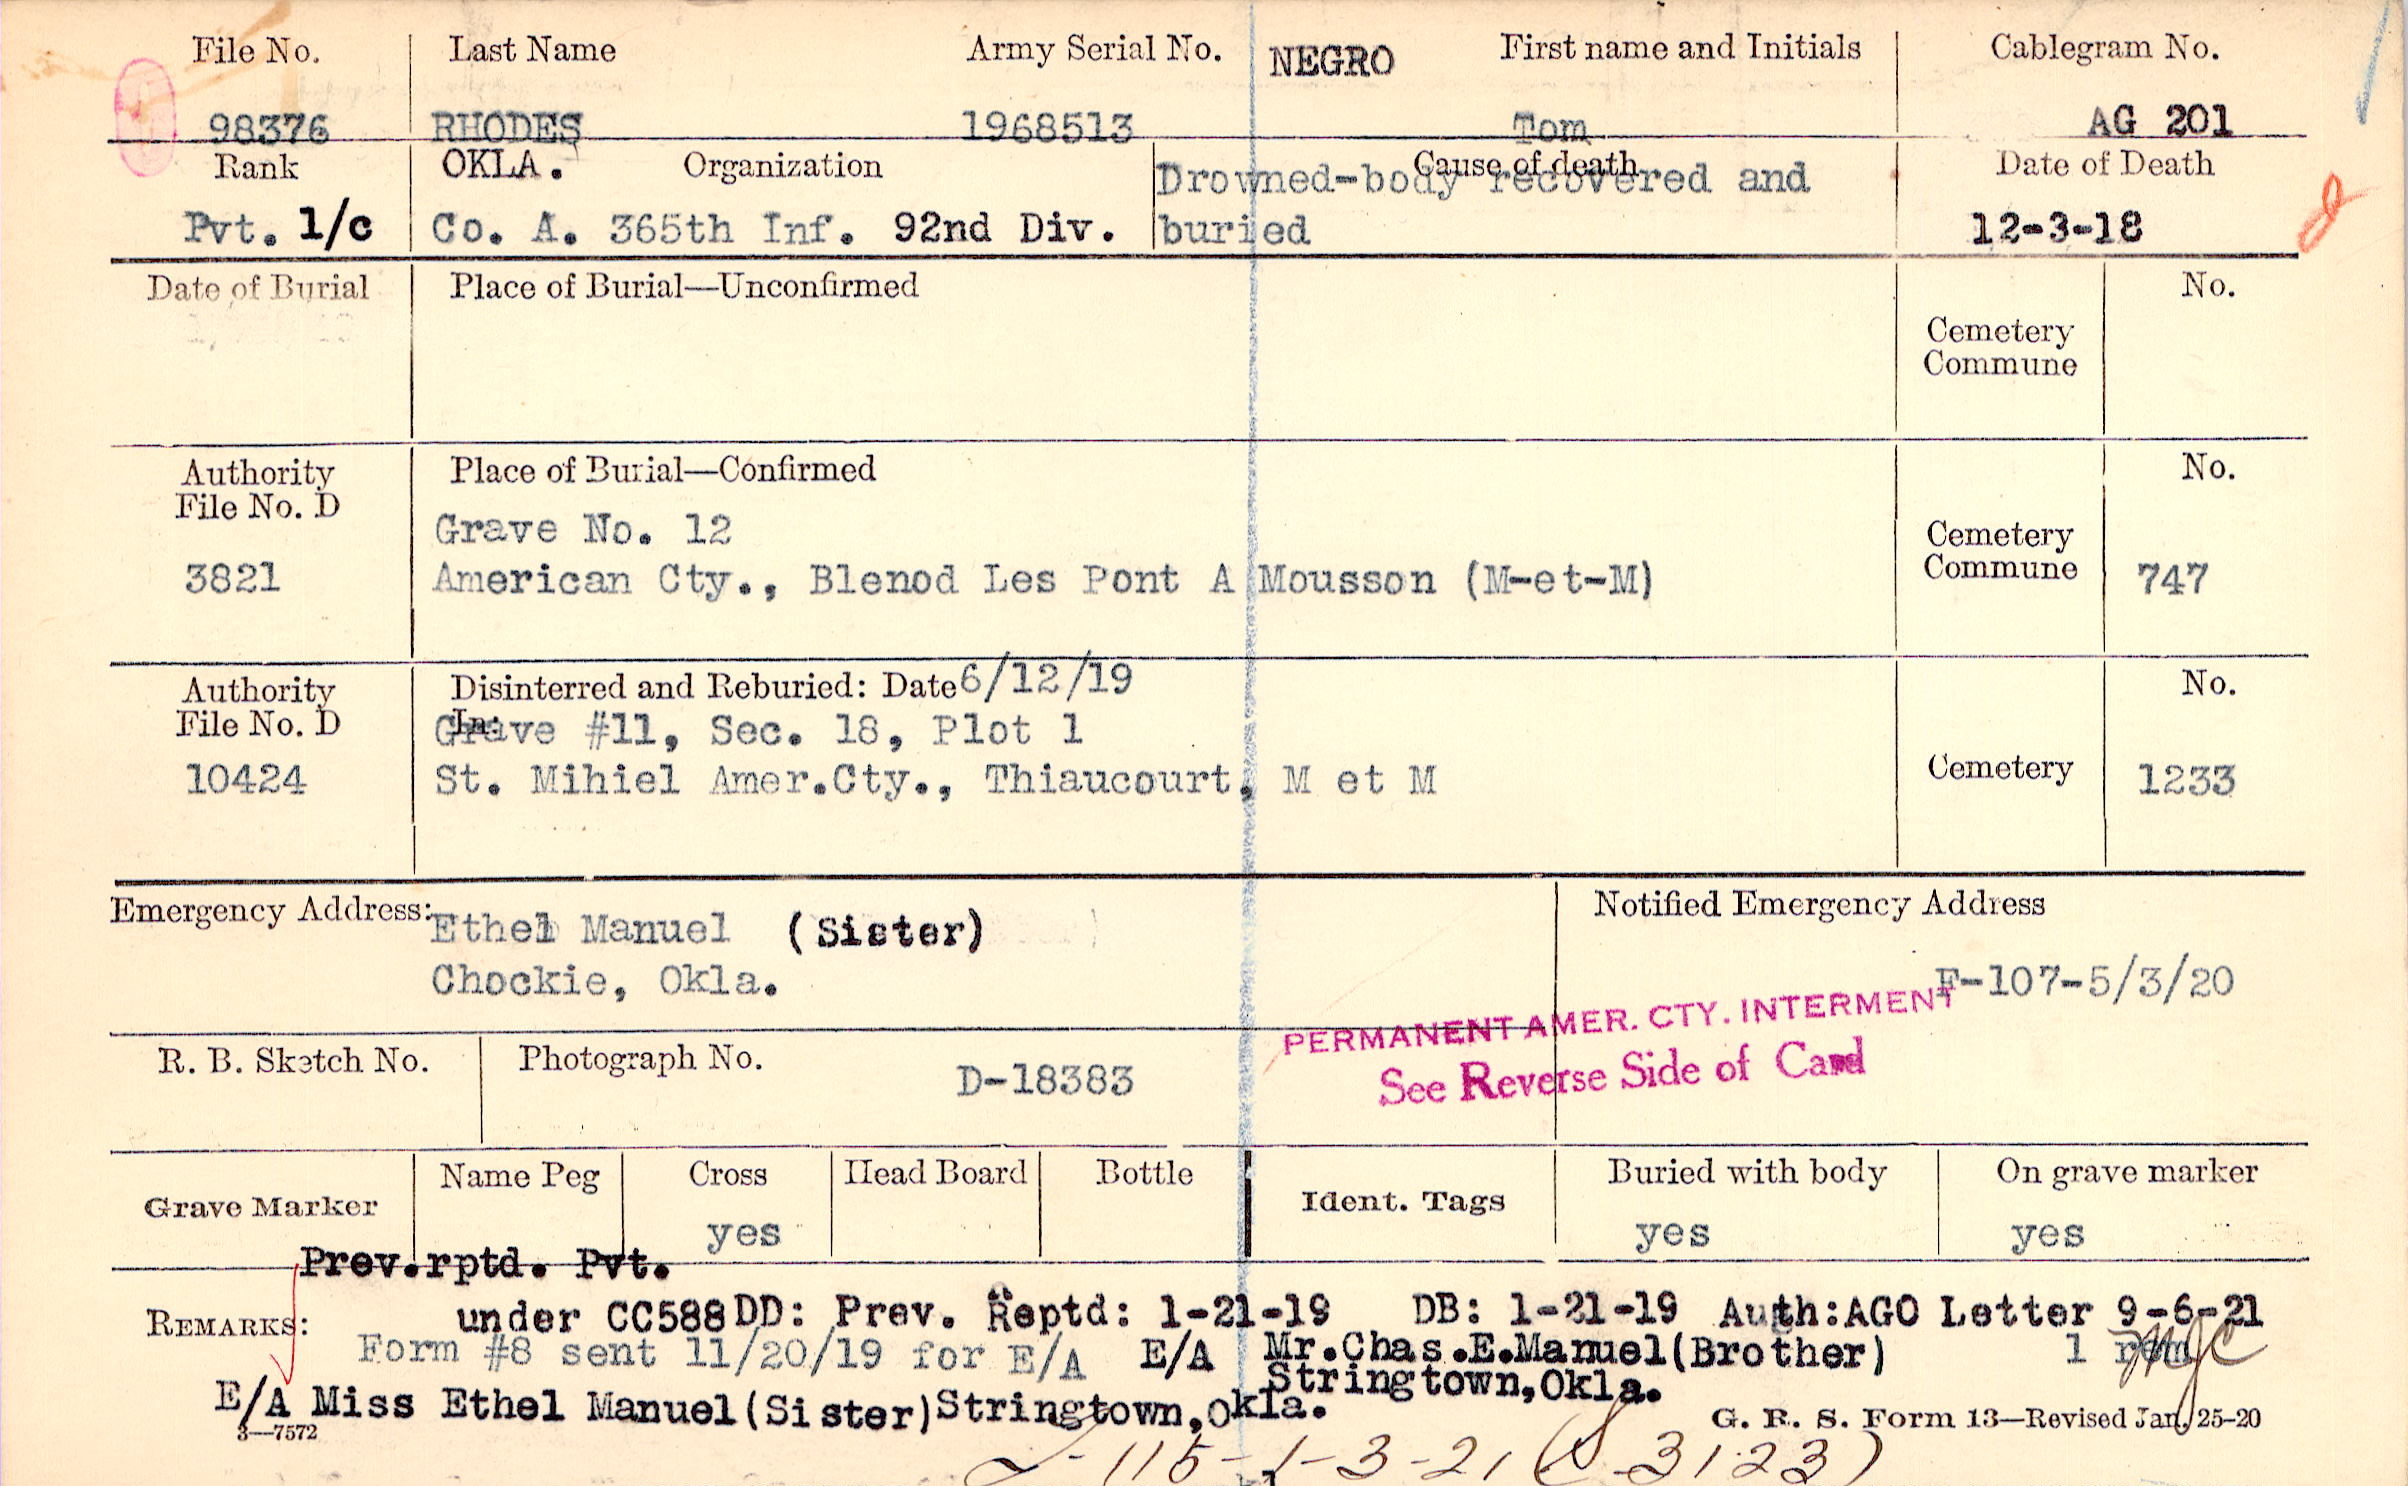 File No. Last Name Army Serial No. NEGRO First name and Initials Cablegram No.
98376 RHODES 1968513 Tom AG 201
Rank OKLA. Organization Cause of death Date of Death
Drowned-body recovered and
Pvt. 1/c Co. A. 365th Inf. 92nd Div. buried 12-3-18
Date of Burial Place of Burial—Unconfirmed No.
Cemetery
Commune
Authority Place of Burial—Confirmed No.
File No. D
Grave No. 12 Cemetery
3821 American Cty., Blenod Les Pont A Mousson (M-et-M) Commune 747
Authority Disinterred and Reburied: Date 6/12/19 No.
File No. D In:
Grave #11, Sec. 18, Plot 1
10424 St. Mihiel Amer.Cty., Thiaucourt, M et M Cemetery 1233
Emergency Address: Notified Emergency Address
Ethel Manuel (Sister)
Chockie, Okla. F-107-5/3/20
PERMANENT AMER. CTY. INTERMENT
See Reverse Side of Card
R. B. Sketch No. Photograph No. D-18383
Grave Marker Name Peg Cross Head Board Bottle Ident. Tags Buried with body On grave marker
yes yes yes
Prev.rptd. Pvt.
REMARKS: under CC588 DD: Prev. Reptd: 1-21-19 DB: 1-21-19 Auth:AGO Letter 9-6-21
Form #8 sent 11/20/19 for E/A E/A Mr.Chas.E.Manuel(Brother) 1
Stringtown,Okla.
E/A Miss Ethel Manuel(Sister)Stringtown,Okla.
3—7572 G. R. S. Form 13—Revised Jan. 25-20
115-1-3-21 ( 3123)